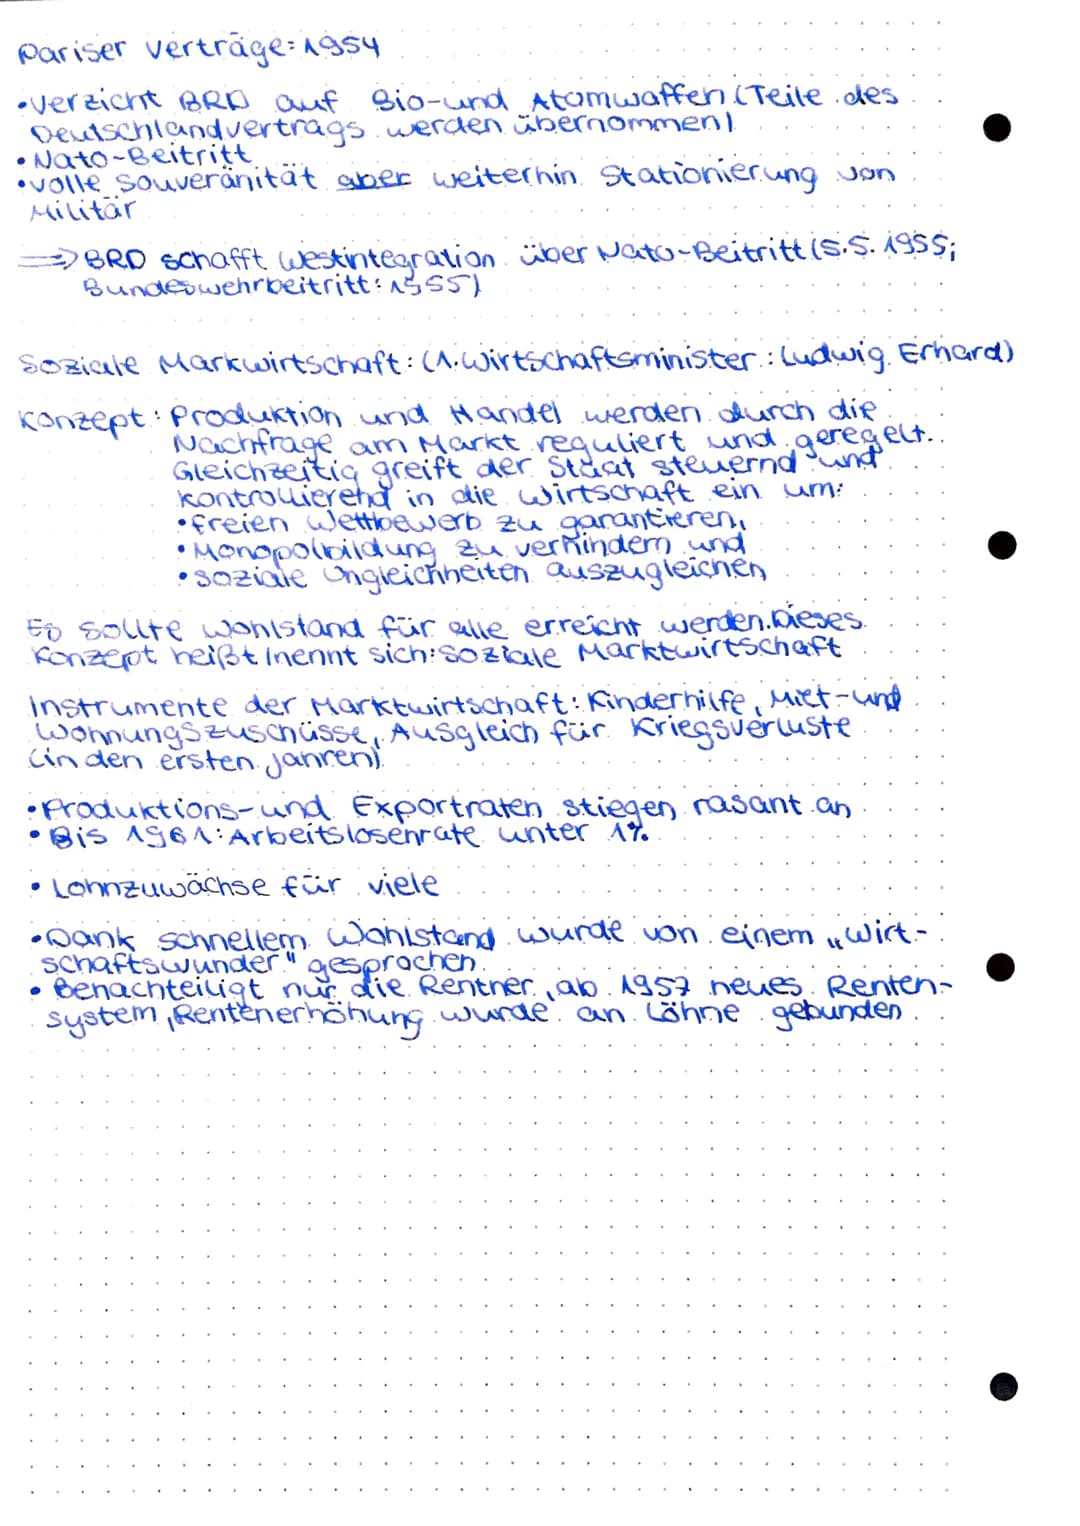 Pariser Verträge: 1954
•Verzicht BRD auf Bio-und Atomwaffen (Teile des
Deutschlandvertrags werden übernommen)
•Nato-Beitritt
•volle Souveränität aber weiterhin Stationierung von
Militär
=>BRD schafft Westintegration über Nato-Beitritt (5.5.1955;
Bundeswehrbeitritt: 1955)
Soziale Markwirtschaft: (1.Wirtschaftsminister: Ludwig Erhard)
Konzept: Produktion und Handel werden durch die
Nachfrage am Markt reguliert und geregelt.
Gleichzeitig greift der Staat steuernd und
kontrollierend in die Wirtschaft ein um:
•freien Wettbewerb zu garantieren,
•Monopolbildung zu verhindern und
•soziale Ungleichheiten auszugleichen
Es sollte Wohlstand für alle erreicht werden. Dieses
Konzept heißt/nennt sich: Soziale Marktwirtschaft
Instrumente der Marktwirtschaft: Kinderhilfe, Miet-und
Wohnungszuschüsse, Ausgleich für Kriegsverluste
(in den ersten Jahren)
•Produktions-und Exportraten stiegen rasant an
•Bis 1961: Arbeitslosenrate unter 1%
•Lohnzuwächse für viele
•Dank schnellem Wohlstand wurde von einem „Wirt-
schaftswunder" gesprochen
•Benachteiligt nur die Rentner, ab 1957 neues Renten-
system, Rentenerhöhung wurde an Löhne gebunden